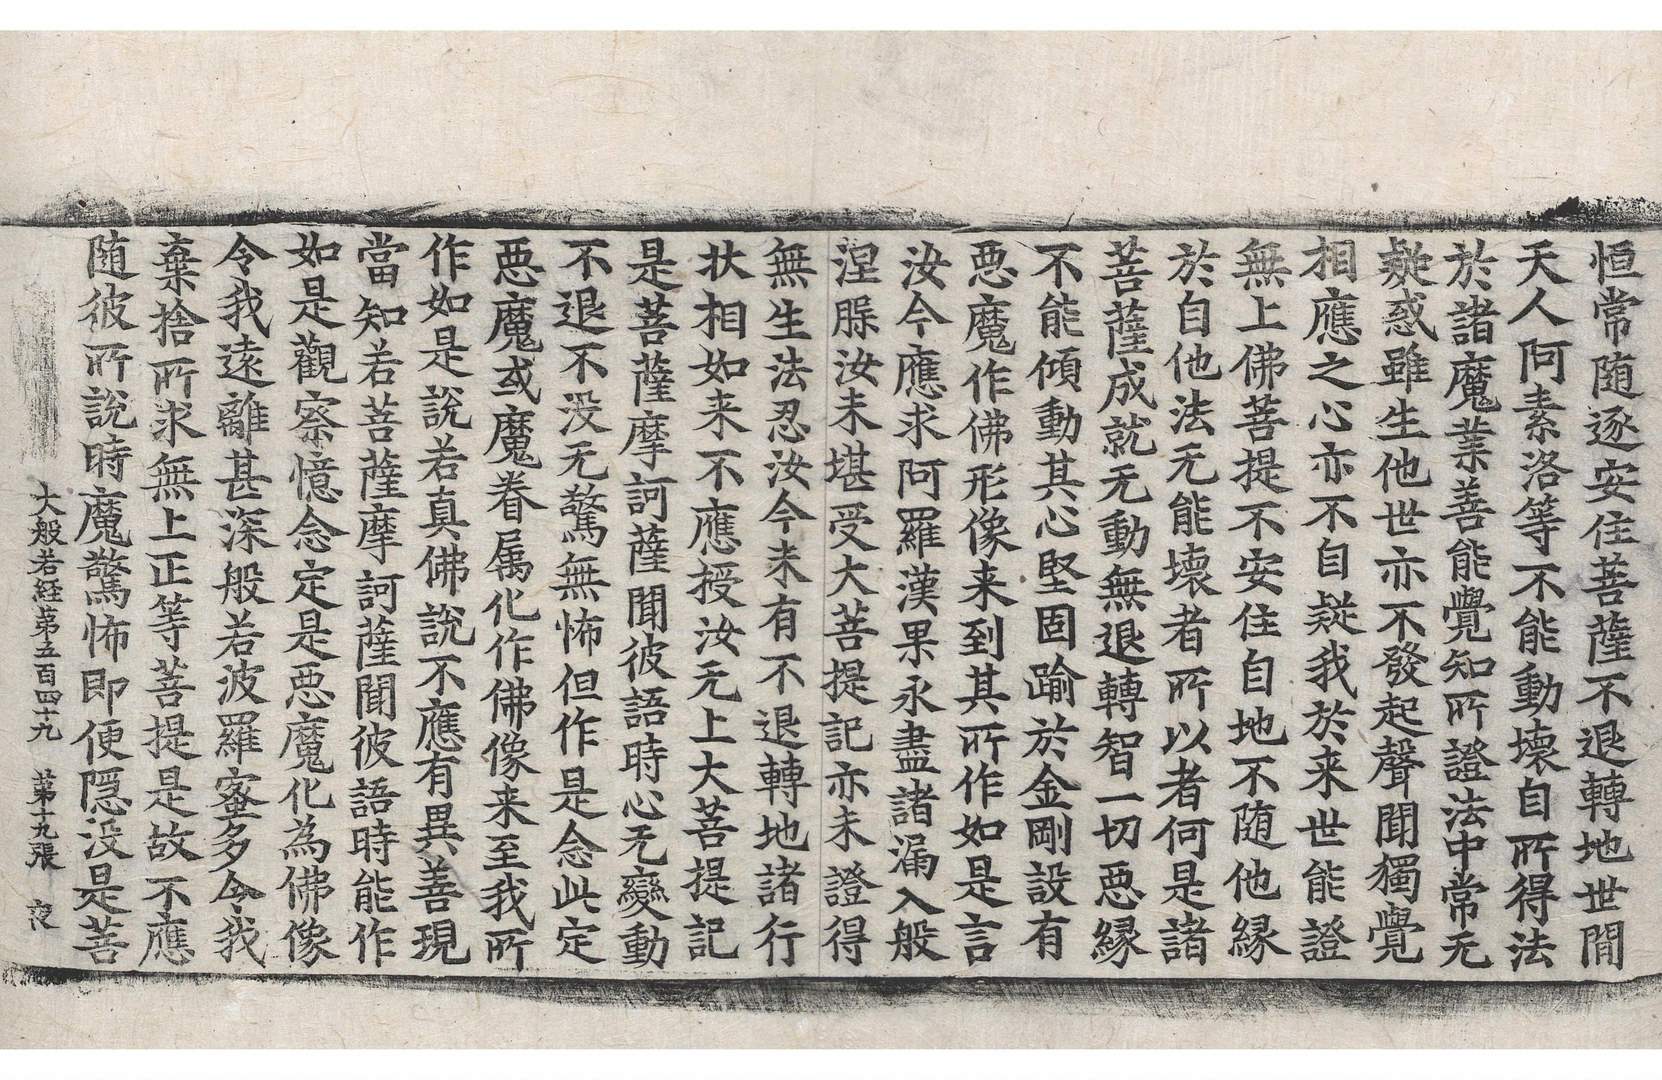 恒常随逐安住菩薩不退轉地世間
天人阿素洛等不能動壞自所得法
於諸魔業善能覺知所證法中常无
疑惑雖生他世亦不發起聲聞獨覺
相應之心亦不自疑我於来世能證
無上佛菩提不安住自地不随他縁
於自他法无能壞者所以者何是諸
菩薩成就无動無退轉智一切惡縁
不能傾動其心堅固踰於金剛設有
惡魔作佛形像来到其所作如是言
汝今應求阿羅漢果永盡諸漏入般
涅槃汝未堪受大菩提記亦未證得
無生法忍汝今未有不退轉地諸行
狀相如来不應授汝无上大菩提記
是菩薩摩訶薩聞彼語時心无變動
不退不没无驚無怖但作是念此定
惡魔或魔眷属化作佛像来至我所
作如是說若真佛說不應有異善現
當知若菩薩摩訶薩聞彼語時能作
如是觀察憶念定是惡魔化為佛像
令我遠離甚深般若波羅蜜多令我
棄捨所求無上正等菩提是故不應
随彼所說時魔驚怖即便隱没是菩
大般若経第五百四十九 第十九張 夜